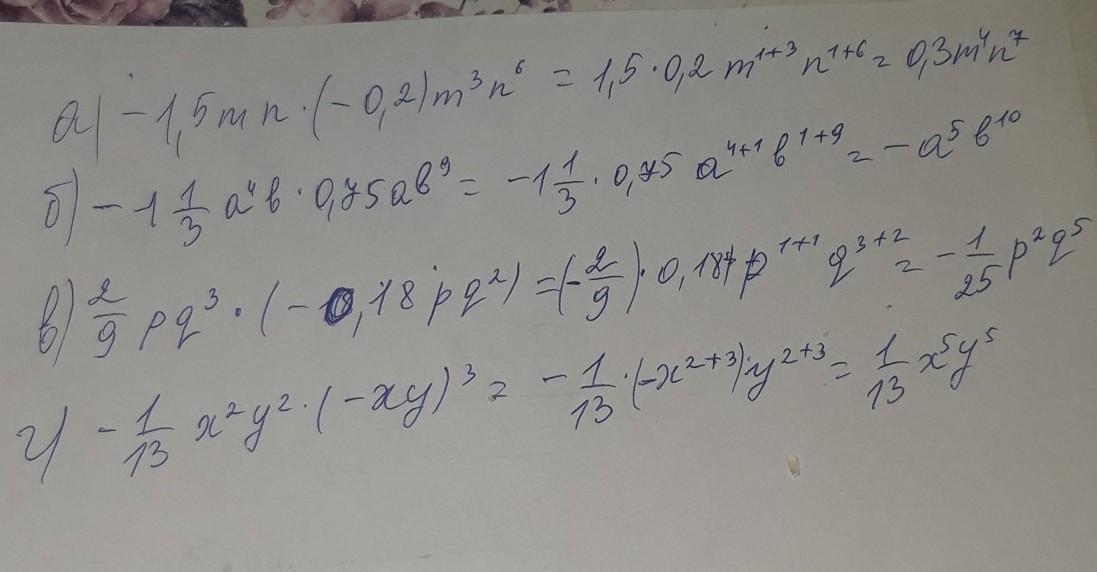 а) -1,5mn·(-0,2)m³n⁶ = 1,5·0,2 m¹⁺³n¹⁺⁶ = 0,3m⁴n⁷
б) -1 1/3 a⁴b·0,75ab⁹ = -1 1/3·0,75 a⁴⁺¹b¹⁺⁹ = -a⁵b¹⁰
в) 2/9 pq³·(-0,18pq²) = (-2/9)·0,18 p¹⁺¹q³⁺² = -1/25 p²q⁵
г) -1/13 x²y²·(-xy)³ = -1/13·(-x²⁺³)·y²⁺³ = 1/13 x⁵y⁵